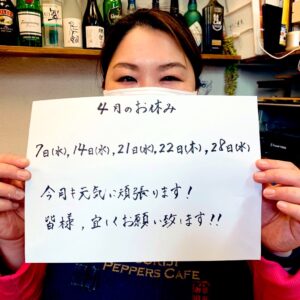 4月のお休み
7日(水),14日(水),21日(水),22日(木),28日(水)
今月も元気に頑張ります!
皆様,宜しくお願い致します!!
PEPPERS CAFE